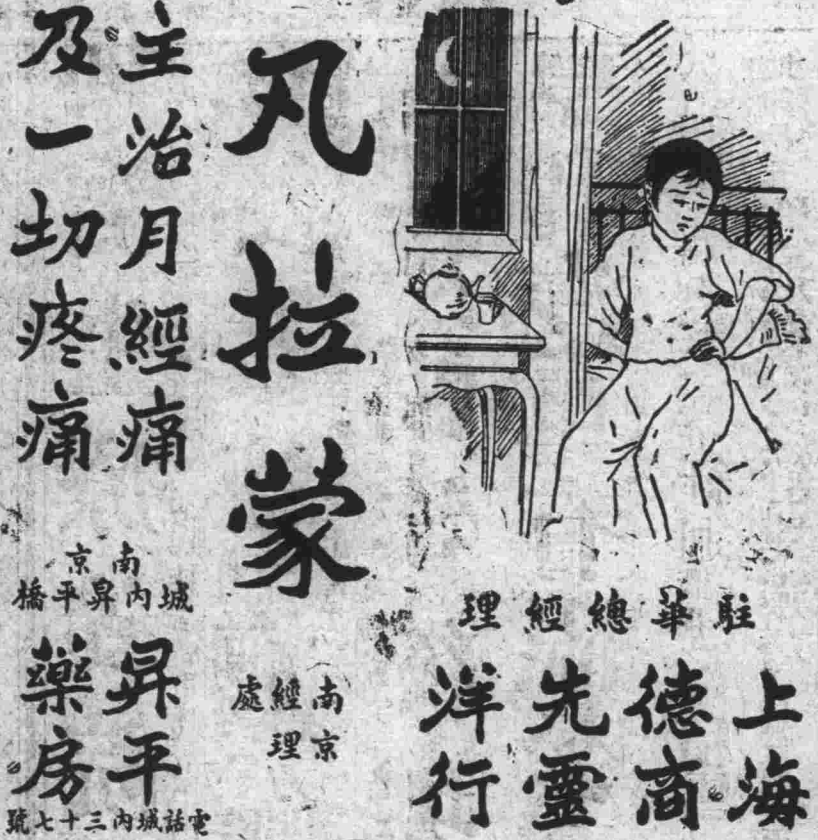 凡拉蒙
主治月經痛
及一切疼痛
駐華總經理
上海德商先靈洋行
南京經理處
南京
城內昇平橋
昇平藥房
電話城內三十七號